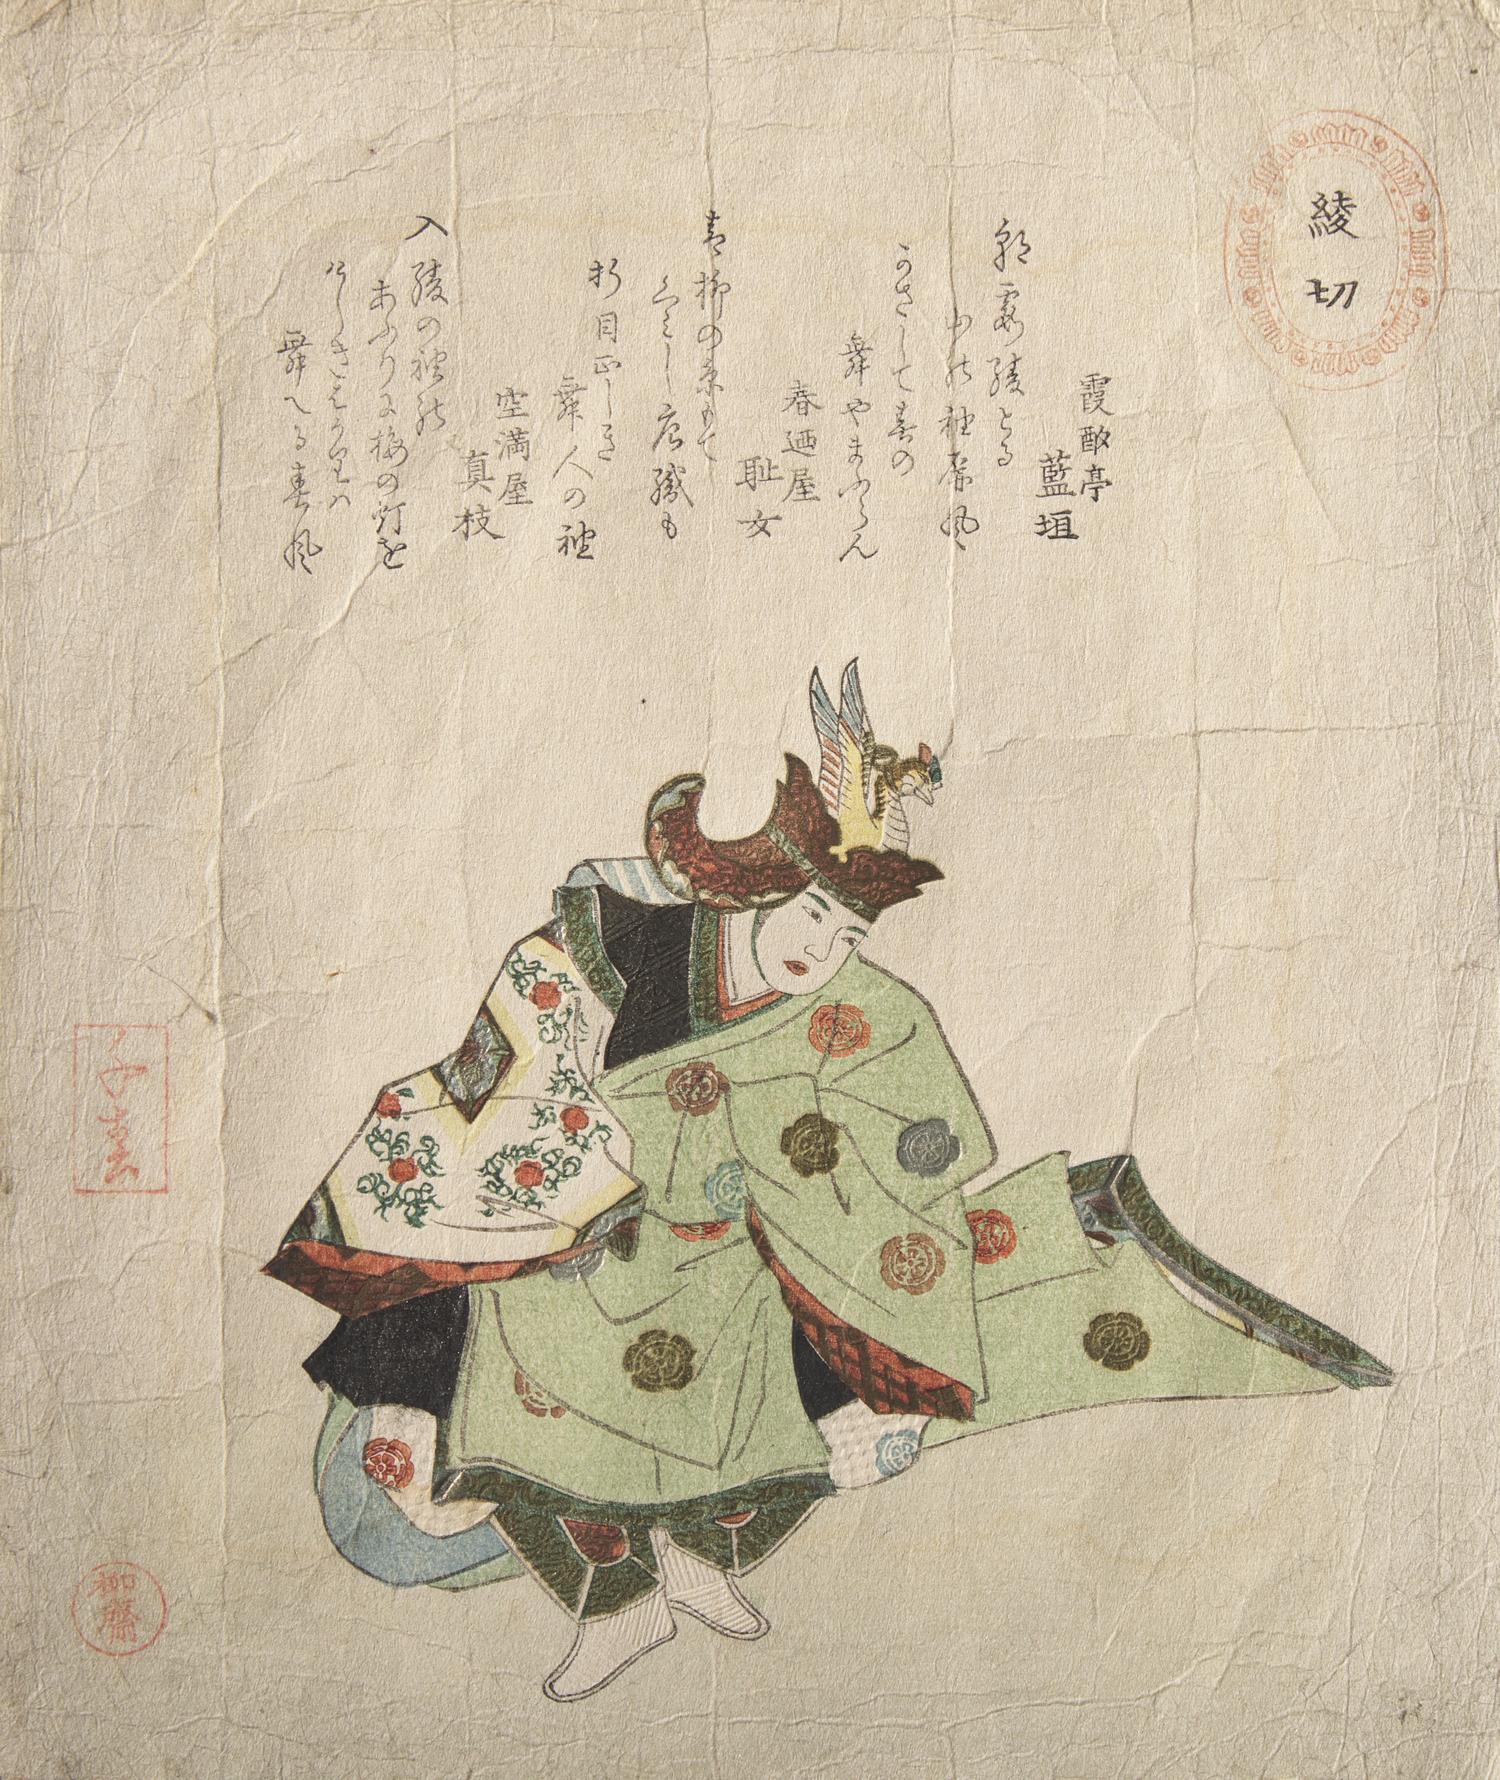 綾切
霞酔亭
藍垣
朝霞綾とる
山の袖屏風
かさして春の
舞やまふらん
春廼屋
耻女
青柳の糸もて
くみし唐織も
折目正しき
舞人の袖
空満屋
真枝
入綾の袖の
あふりに梅の灯を
けしきはかりは
舞へる春風
柳斎